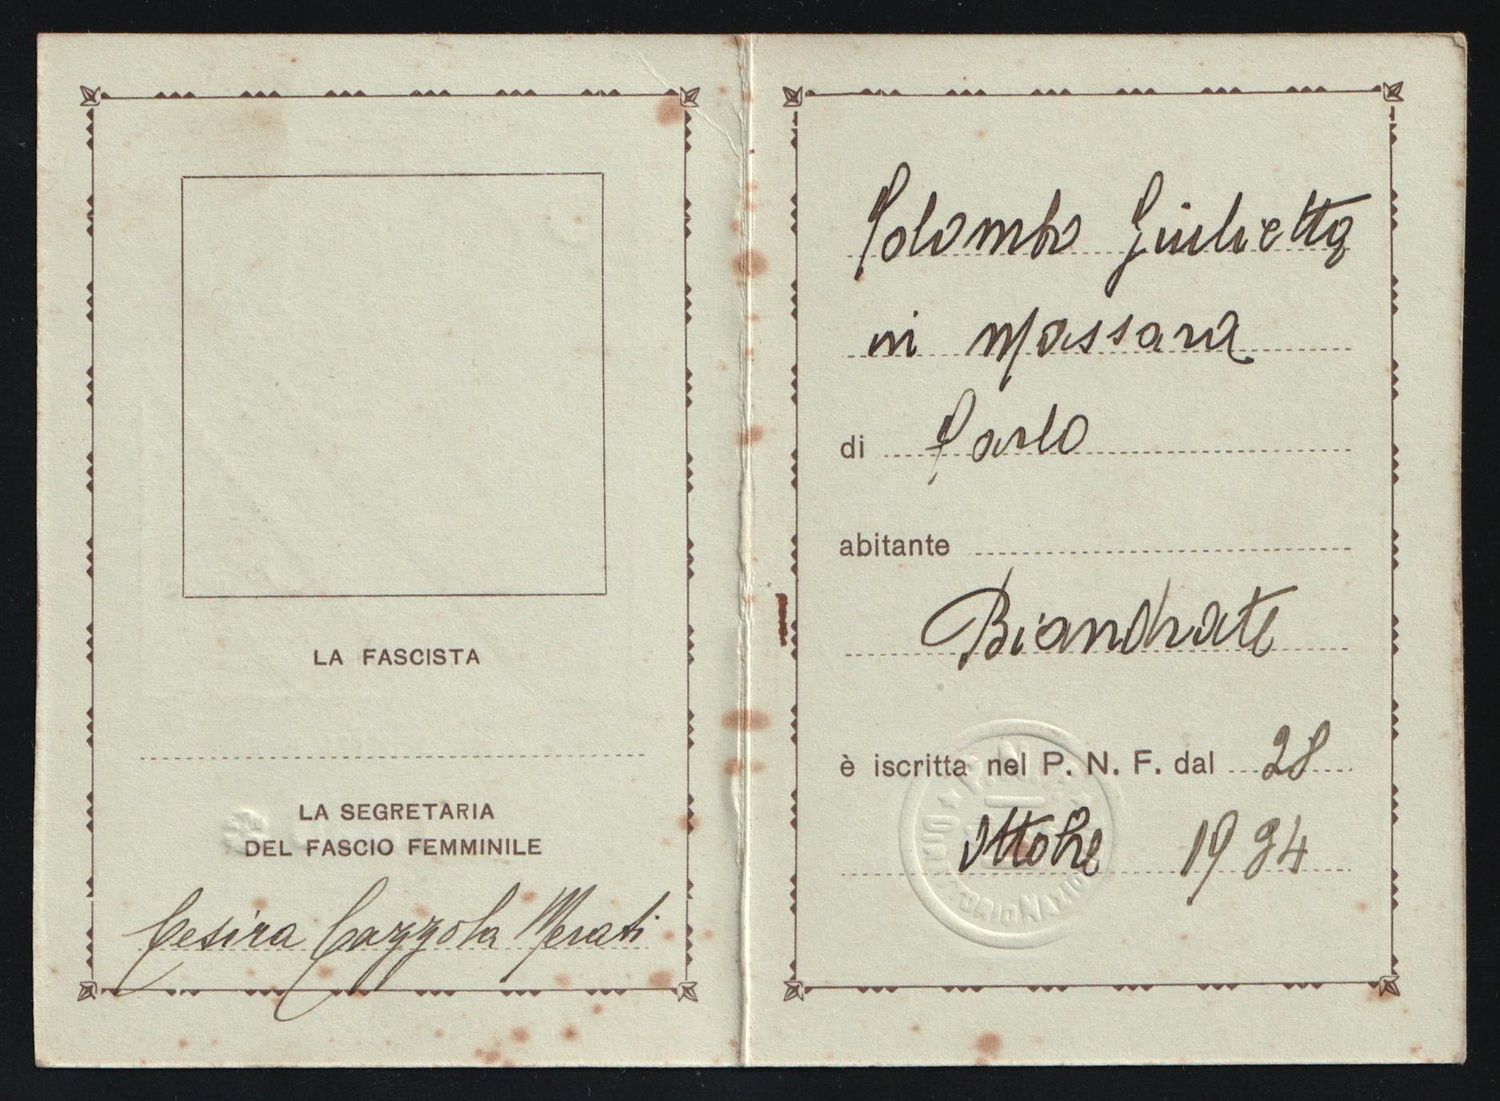 LA FASCISTA
LA SEGRETARIA
DEL FASCIO FEMMINILE
Cesira Cazzola Merati
Colombo Giulietta
in Massara
di Carlo
abitante
Biandrate
è iscritta nel P. N. F. dal 28
Ottobre 1934
P.N.F.
DIRETTORIO NAZIONALE